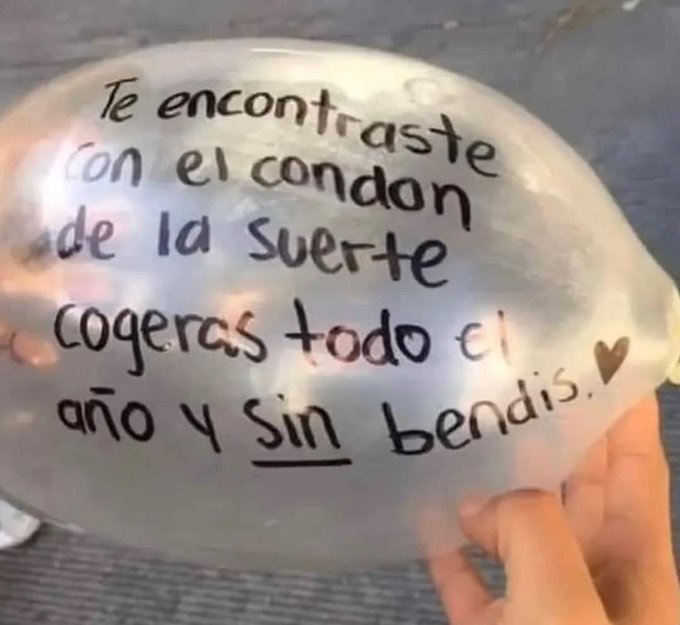 Te encontraste
con el condon
de la suerte
cogeras todo el
año y sin bendis.♥